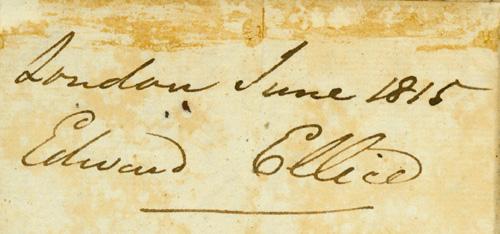 London June 1815
Edward Ellice